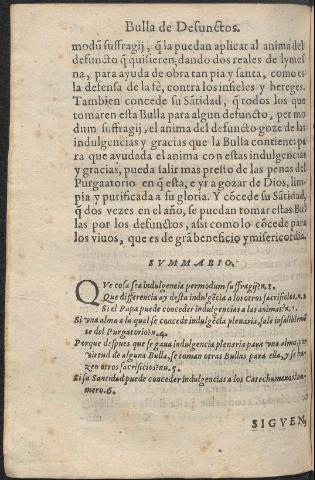 Bulla de Defunctos.
modũ suffragij, q̃ la puedan aplicar al anima del
defuncto q̃ quisieren; dando dos reales de lymos
na, para ayuda de obra tan pia y santa, como es
la defensa de la fè, contra los infieles y hereges.
Tambien concede su Sãtidad, q̃ todos los que
tomaren esta Bulla para algun defuncto, per mo
dum suffragij, el anima del defuncto goze de las
indulgencias y gracias que la Bulla contiene: pa
ra que ayudada el anima con estas indulgencias
y gracias, pueda salir mas presto de las penas del
Purgaatorio en q̃ esta, e yr a gozar de Dios, lim-
pia y purificada a su gloria. Y cõcede su Sãtidad,
q̃ dos vezes en el año, se puedan tomar estas Bul
las por los defunctos, assi como lo cõcede para
los viuos, que es de grã beneficio y misericordia.
SVMMARIO.
QVe cosa sea indulgencia per modum suffragij? n. 1.
Que differencia ay desta indulgẽcia a los otros sacrificios. n. 2
Si el Papa puede conceder indulgencias a las animas? n. 3.
Si vna alma a la qual se concede indulgẽcia plenaria, sale infalibleme
te del Purgatorio? n. 4.
Porque despues que se gana indulgencia plenaria para vna alma, en
virtud de alguna Bulla, se toman otras Bullas para ella, y se ha-
zen otros sacrificios? nu. 5.
Si su Santidad puede conceder indulgencias a los Catechumenos? nu-
mero. 6.
SIGVEN,